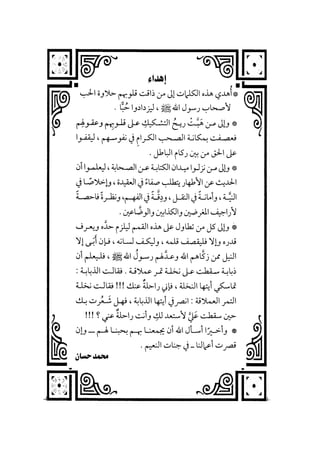 إهداء
* أُهدي هذه الكلمات إلى من ذاقت قلوبهم حلاوة الحب
لأصحاب رسول الله ﷺ ، ليزدادوا حُبًّا .
* وإلى مـن هَبَّـتْ ريـحُ التشـكيكِ عـلى قلـوبهم وعقـولهم
فعصـفت بمكانـة الصـحب الكـرام في نفوسـهم ، ليقفـوا
على الحق من بين ركام الباطل .
* وإلى مـن نزلـوا ميـدان الكتابـة عـن الصحابة ، ليعلمـوا أن
الحديث عن الأطهار يتطلب صفاءً في العقيدة ، وإخلاصًـا في
النيَّـة ، وأمانـةً في النقـل ، ودِقَّـةً في الفهـم، ونظـرةً فاحصـةً
لأراجيف المغرضين والكذابين والوضَّاعين .
* وإلى كل من تطاول على هذه القمم ليلزم حدَّه ويعـرف
قدره وإلا فليقصف قلمه ، وليكـف لسـانه ، فإن أَبَـى إلا
النيل ممن زكَّاهم الله وعـدَّلهم رسـولُ الله ﷺ ، فلـيعلم أن
ذبابـة سـقطت عـلى نخلـة تمـر عملاقـة . فقالـت الذبابـة :
تماسكي أيتها النخلة ، فإني راحلةٌ عنك !!! فقالـت نخلـة
التمر العملاقة : انصرفي أيتها الذبابة ، فهـل شَـعُرتُ بـك
حين سقطت عَلَيَّ لأستعد لكِ وأنت راحلةٌ عني ؟ !!!
* وأخـيرًا أسـأل الله أن يجمعنـا بهـم بحبنـا لهـم ــ وإن
قصرت أعمالنا ــ في جنات النعيم .
محمد حسان